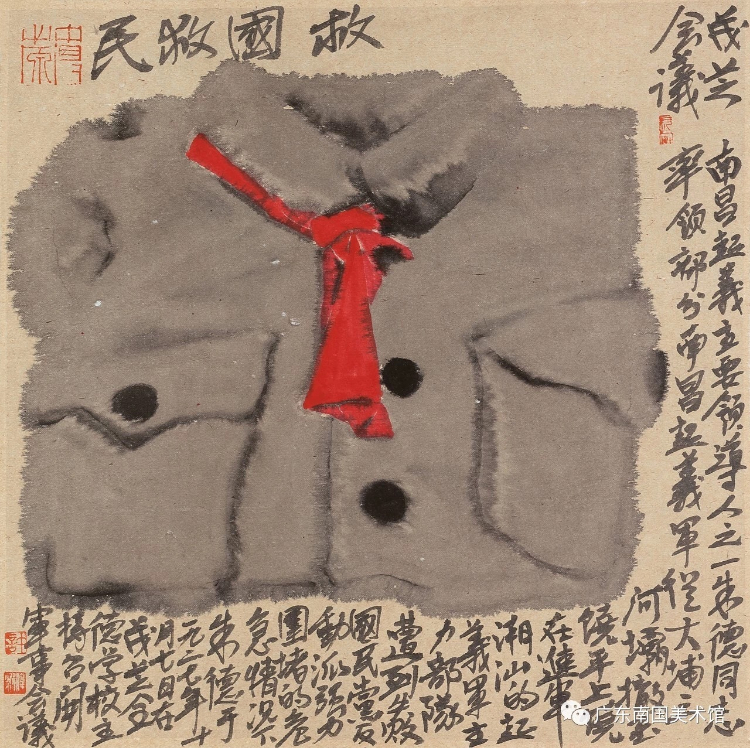 救國救民
茂芝
会議
南昌起義主要领導人之一朱德同志
率领部分南昌起義軍從大埔三
河壩撤至
饒平上境
在進軍
潮汕的起
義軍主
力部隊
遭到失敗
國民黨反
動派强力
圍堵的危
急情况下
朱德于
一九二七年十
月七日在
茂芝全
德学校主
持召開
軍事会議
广东南国美术馆